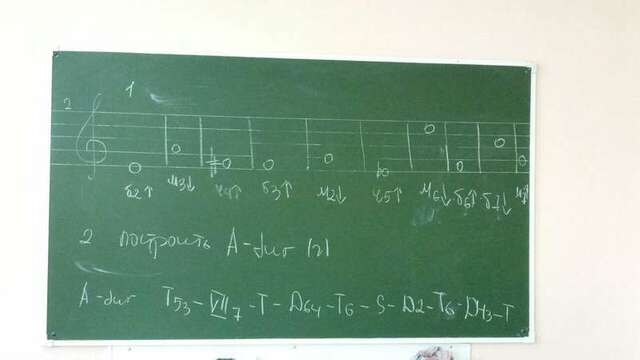 1
2
б2↑ м3↓ ч4↑ б3↑ м2↓ ч5↑ м6↓ б6↑ б7↓ м7↓
2 построить A-dur (г)
A-dur T53-VII7-T-D64-T6-S-D2-T6-D43-T